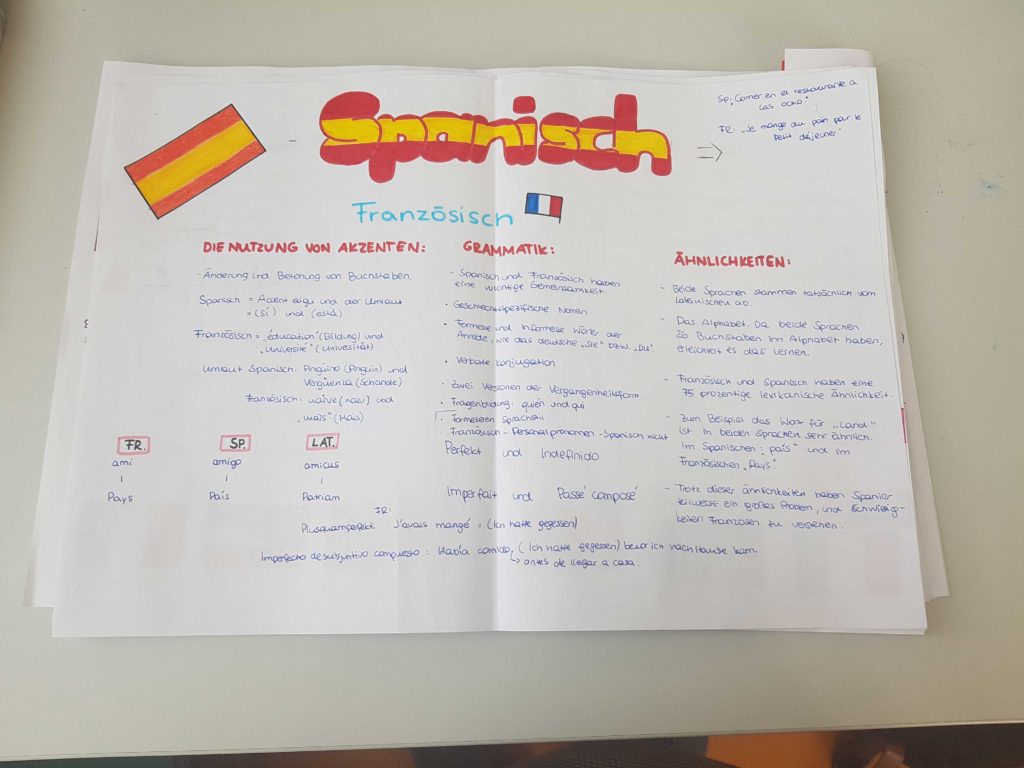 Spanisch
Sp: Comer en el restaurante a
las ocho."
FR: „Je mange du pain pour le
petit déjeuner"
Französisch
DIE NUTZUNG VON AKZENTEN:
- Änderung und Betonung von Buchstaben.
Spanisch = Accent aigu und der Umlaut
= (sí) und (está)
Französisch = „éducation" (Bildung) und
(Universität)
Umlaut Spanisch: Pingüino (Pinguin) und
Vergüenza (Schande)
Französisch: naïve (naiv) und
„maïs" (Mais)
FR. SP. LAT.
ami amigo amicus
Pays País Patriam
GRAMMATIK:
- Spanisch und Französisch haben
eine wichtige Gemeinsamkeit.
• Geschlechtsspezifische Nomen
• Formelle und informelle Wörter der
Anrede, wie das deutsche „Sie" bzw. „Du".
• Verbale Konjugation
• Zwei Versionen der Vergangenheitsform.
• Fragenbildung: quién und qui
Formelleren Sprachstil
- Französisch - Personalpronomen - Spanisch nicht
Perfekt und Indefinido
Imperfait und Passé composé
ÄHNLICHKEITEN:
- Beide Sprachen stammen tatsächlich vom
Lateinischen ab.
- Das Alphabet. Da beide Sprachen
26 Buchstaben im Alphabet haben,
erleichtert es das Lernen.
- Französisch und Spanisch haben eine
75 prozentige lexikalische Ähnlichkeit.
- Zum Beispiel das Wort für „Land"
ist in beiden sprachen sehr ähnlich.
Im Spanischen „país" und im
Französischen „Pays".
- Trotz dieser ähnlichkeiten haben Spanier
teilweise ein großes Problem, und Schwierig-
keiten Franzosen zu verstehen.
FR:
Plusquamperfekt: J'avais mangé = (Ich hatte gegessen)
Imperfecto de subjuntivo compuesto: Había comido, (Ich hatte gegessen) bevor ich nach Hause kam.
antes de llegar a casa.